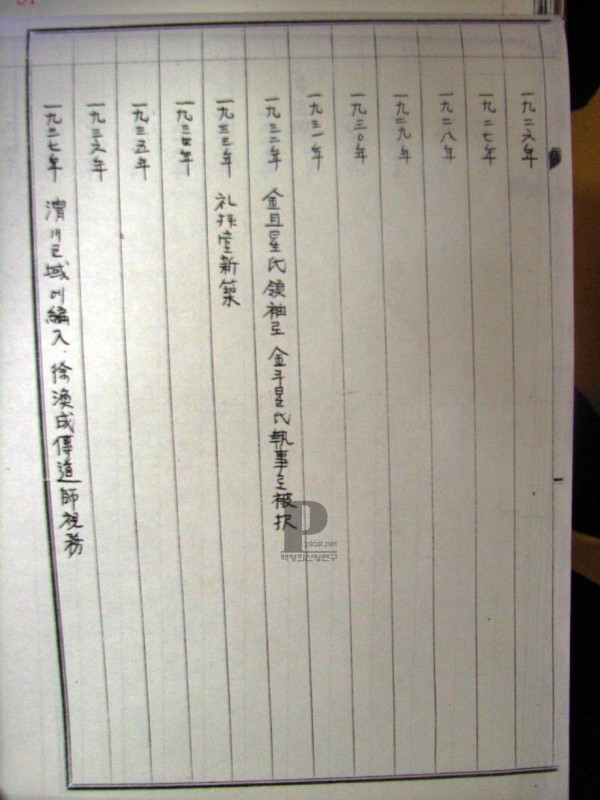 一九二六年
一九二七年
一九二八年
一九二九年
一九三〇年
一九三一年
一九三二年 金且星氏領袖로 金斗星氏執事로 被択
一九三三年 礼拝堂新築
一九三四年
一九三五年
一九三六年
一九三七年 渭川区域에編入. 徐渙成傳道師視務
P
pkist.net
박영희신앙연구